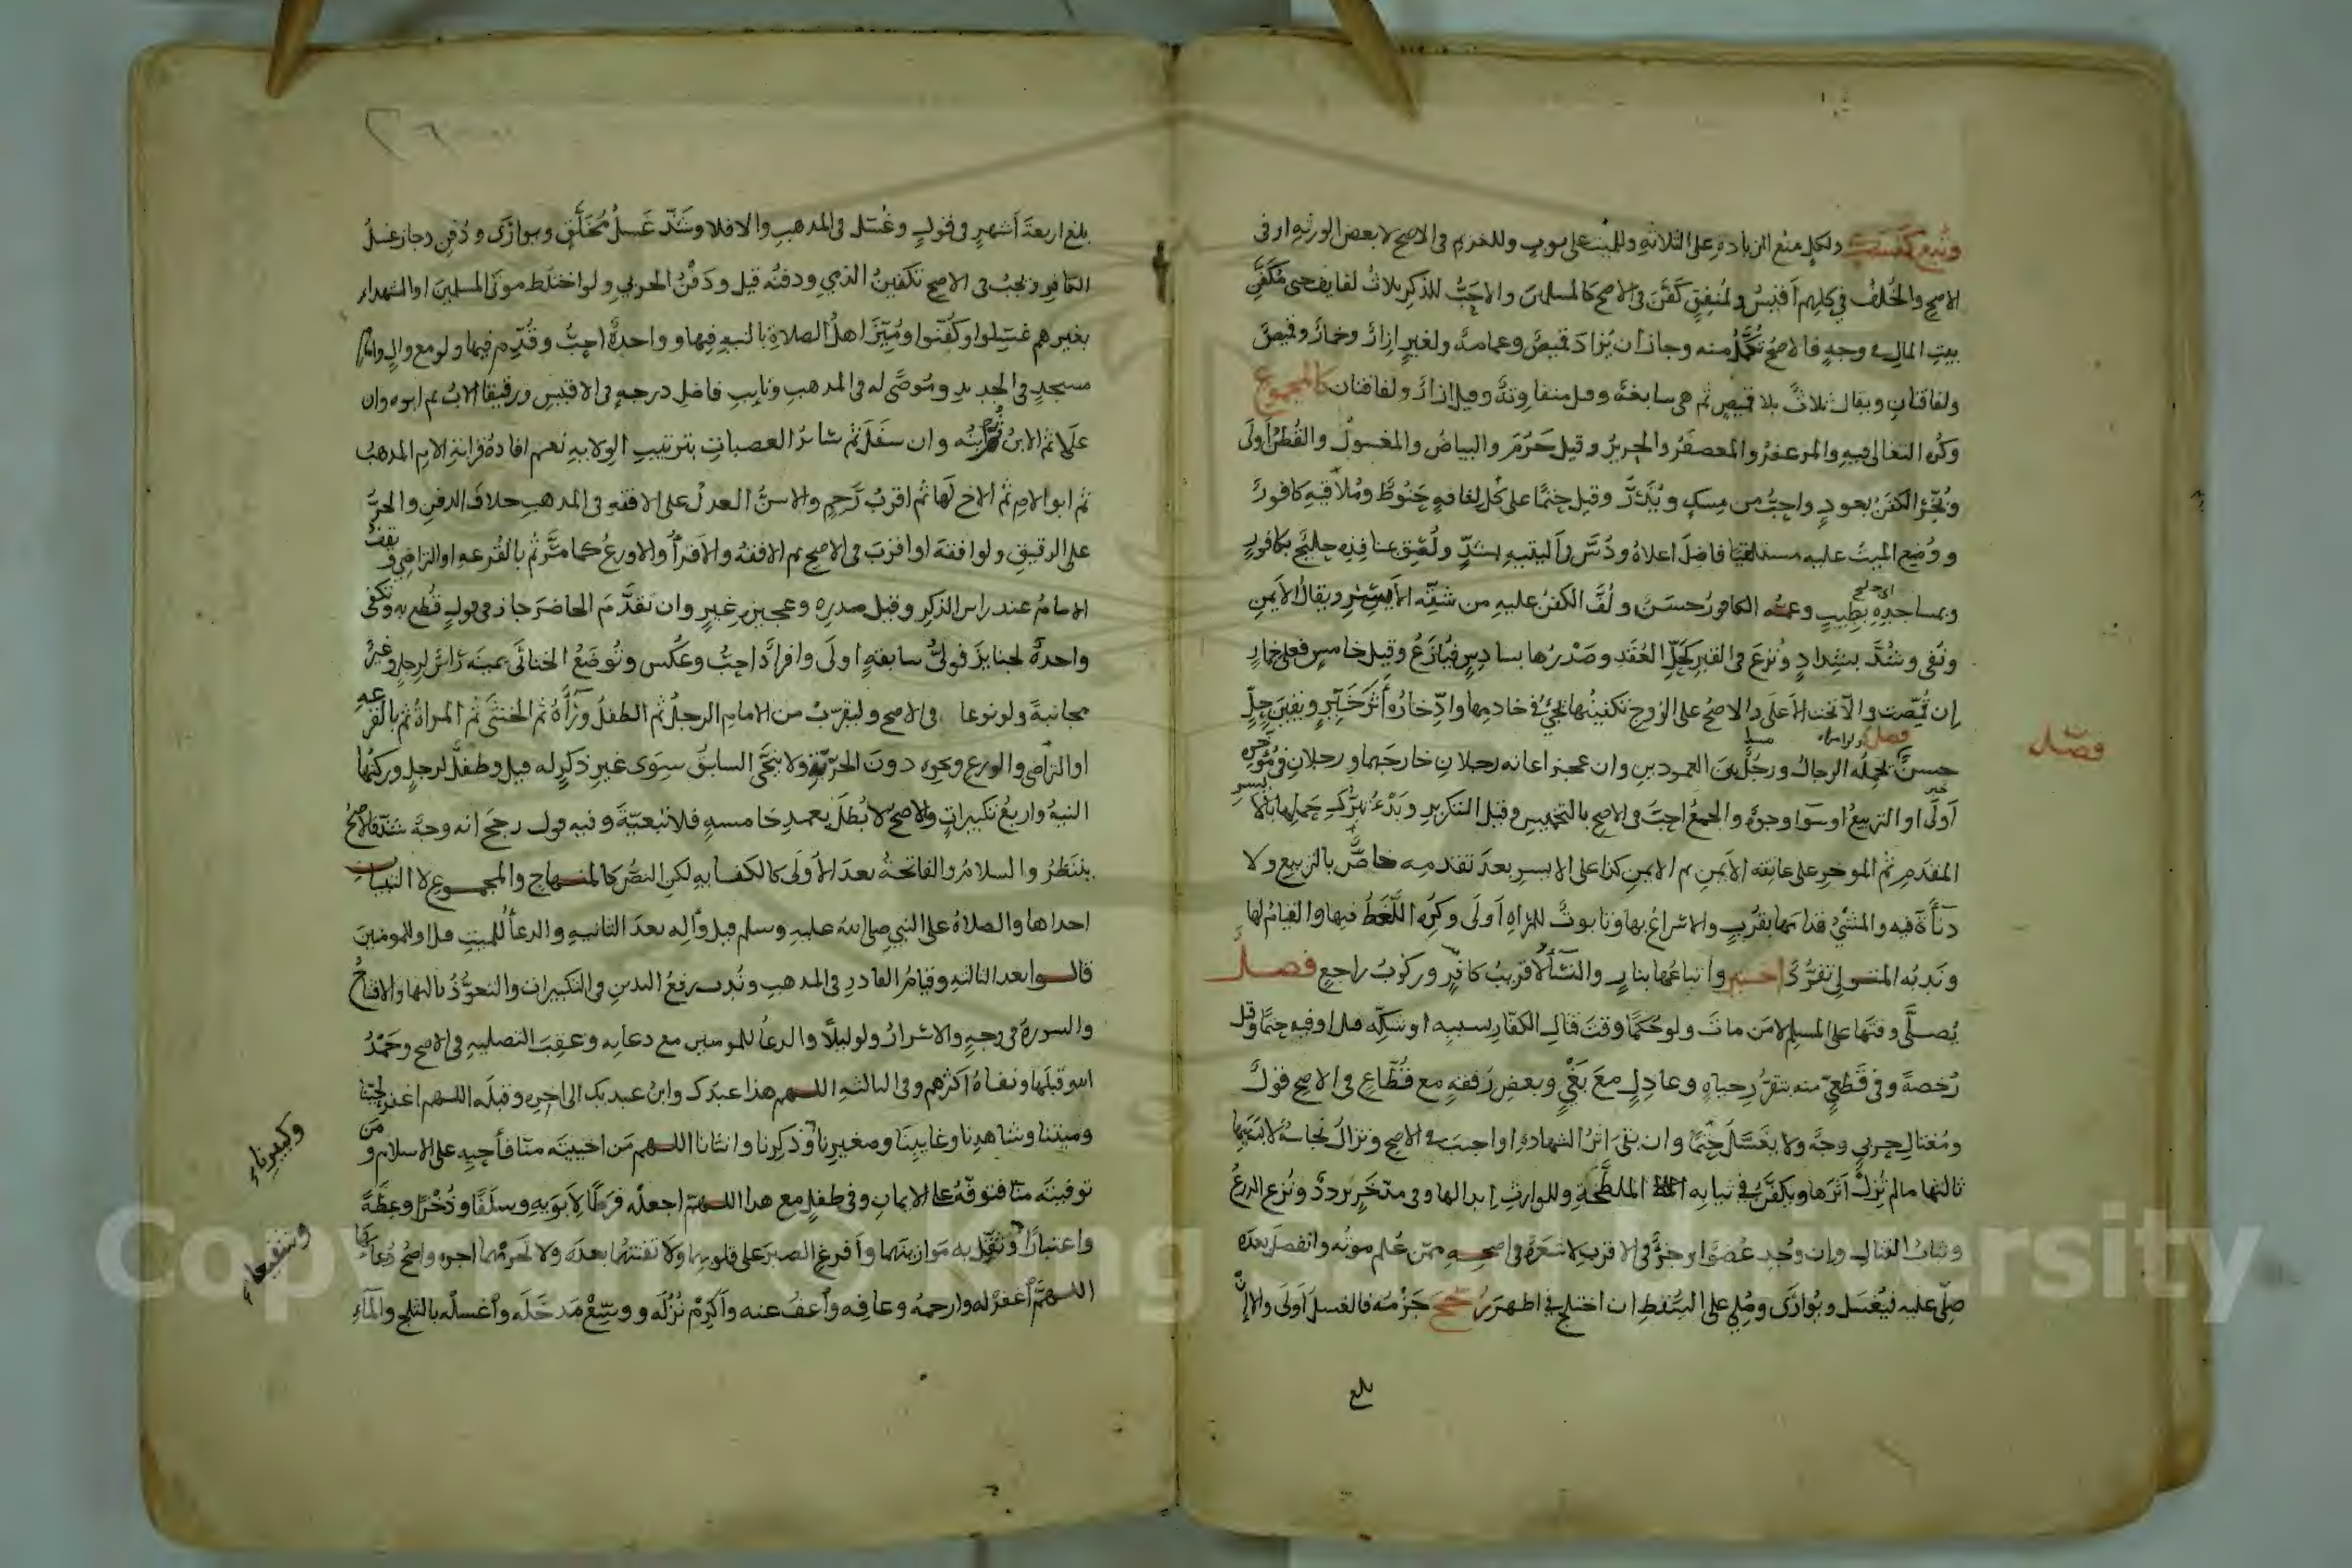 ولكل منع الزيادة على الثلاثة وللميت على ثوب وللغريم في الاصح لا بعض الورثة او في
الاصح والخلف في كلهم أقيس ولمنفق كفن في الاصح كالمسلمين والاحب للذكر ثلاث لفايف حتى مكفن
بيت المال في وجه فالاصح تكمل منه وجاز ان يزاد قميص وعمامة ولغير ازار وخمار وقميص
ولفافتان ويقال ثلاث بلا قميص ثم هي سابغة وقيل متفاوتة وقيل ازار ولفافتان كالمجموع
وكره التغالي فيه والمزعفر والمعصفر والحرير وقيل حرم والبياض والمغسول والقطن أولى
وبخر الكفن بعود واحب من مسك ويذر وقيل حتما على كل لفافة حنوط وملاقيه كافور
ووضع الميت عليه مستلقيا فاضل اعلاه ودس وأليتيه شد ولصق منافذه حليج بكافور
وبمساجده بطيب وعمه الكافور حسن ولف الكفن عليه من شقه الأيسر ويقال الأيمن
ونفي وشد بشداد ونزع في القبر كحل العقد وصدرها بسادس فيازع وقيل خامس فعلى خمار
إن قمصت والا تحت الأعلى والاصح على الزوج تكفينها
فصل
حسن تحمله الرجال ورجل بين العمودين وان عجز اعانه رجلان خارجهما ورجلان في مؤخره
أولى او التربيع او سوا وجوه والجمع احب في الاصح بالتخميس وقيل التكرير وبدء تبرك حملها بالايسر
المقدم ثم الموخر على عاتقه الأيمن ثم الايمن كذا على الايسر بعد تقدمه خاص بالتربيع ولا
دناءة فيه والمشي قدامها بقرب والاسراع بها وتابوت للمراه أولى وكره اللغط فيها والقيام لها
وندبه المتولي تفرد اخير واتباعها بنار والنسا لا قريب كافر وركوب راجع فصل
يصلى وقتها على المسلم لا من مات ولو حكما وقت قتال الكفار بسببه او شكه قيل او فيه حتما وقيل
رخصة وفي قطعي منه بتقرر حياة وعادل مع بغي وبعض رفقة مع قطاع في الاصح قول
ومغتال حربي وجه ولا يغسل حتما وان بقي اثر الشهادة او اجنب في الاصح وتزال نجاسة لا بسببها
ثالثها مالم تزل اثرها ويكفن في ثيابه الملطخة وللوارث ابدالها وفي متخير تردد ونزع الدرع
وثياب القتال وان وجد عضو او جزو في الاقرب لا شعرة في اصحه ممن علم موته وانفصل بعده
صلى عليه فيغسل ويوارى وصلي على السقط ان اختلج في اظهر صحح جزمه فالغسل أولى والا إن
بلغ
فصل
بلغ اربعة أشهر في قول وغسل في المذهب والا فلا وشذ غسل مخلق ويوارى ودفن وجاز غسل
الكافر ويجب في الاصح تكفين الذمي ودفنه قيل ودفن الحربي ولو اختلط موتى المسلمين او الشهداء
بغيرهم غسلوا وكفنوا وميز اهل الصلاة بالنية فيها وواحدة احب وقدم فيها ولو مع وال وامام
مسجد في الجديد وموصى له في المذهب ونايب فاضل درجة في الاقيس ورقيقا الاب ثم ابوه وان
علا ثم الابن ثم ابنه وان سفل ثم سائر العصبات بترتيب الولاية نعم افادة قرابة الام المذهب
ثم ابو الام ثم الاخ لها ثم اقرب رحم والاسن العدل على الافقه في المذهب خلاف الدفن والحر
على الرقيق ولو افقه او اقرب في الاصح ثم الافقه والاقرأ والاورع كما مر ثم بالقرعة او التراضي ويقف
الامام عند راس الذكر وقيل صدره وعجيز غير وان تقدم الحاضر جاز في قول قطع به وتكفى
واحدة لجنايز فولي سابقة اولى وافراد احب وعكس وتوضع الخناثى يمينه راس لرجل وغيره
مجانبة ولو نوعا في الاصح وليقرب من الامام الرجل ثم الطفل وراه ثم الخنثى ثم المراة ثم بالقرعة
او التراضي والورع ونحوه دون الحرية ولا ينحى السابق سوى غير ذكر له قيل وطفل لرجل وركنها
النية واربع تكبيرات والاصح لا يبطل بعمد خامسة فلا تبعية وفيه قول رجح انه وجه شذ فالاصح
ينتظر والسلام والفاتحة بعد الأولى كالكفاية لكن النص كالمنهاج والمجموع لا التبيان
احداها والصلاة على النبي صلى الله عليه وسلم قيل وآله بعد الثانية والدعا للميت قيل او للمومنين
قالوا بعد الثالثة وقيام القادر في المذهب وندب رفع اليدين في التكبيرات والتعوذ ثالثها والافتتاح
والسورة في وجه والاسرار ولو ليلا والدعا للمومنين مع دعايه وعقب التصلية في الاصح وحمد
الله قبلها ونفاه اكثرهم وفي الثالثة اللهم هذا عبدك وابن عبديك الى اخره وقبله اللهم اغفر لحينا
وميتنا وشاهدنا وغايبنا وصغيرنا وذكرنا وانثانا اللهم من احييته منا فأحيه على الاسلام ومن
توفيته منا فتوفه على الايمان وفي طفل مع هذا اللهم اجعله فرطا لأبويه وسلفا وذخرا وعظة
واعتبارا وثقل به موازينهما وأفرغ الصبر على قلوبهما ولا تفتنهما بعده ولا تحرمهما اجره واصح دعائها
اللهم أغفر له وارحمه وعافه وأعف عنه وأكرم نزله ووسع مدخله وأغسله بالثلج والمآء
وكبيرنا
وشفيعا
Copyright © King Saud University